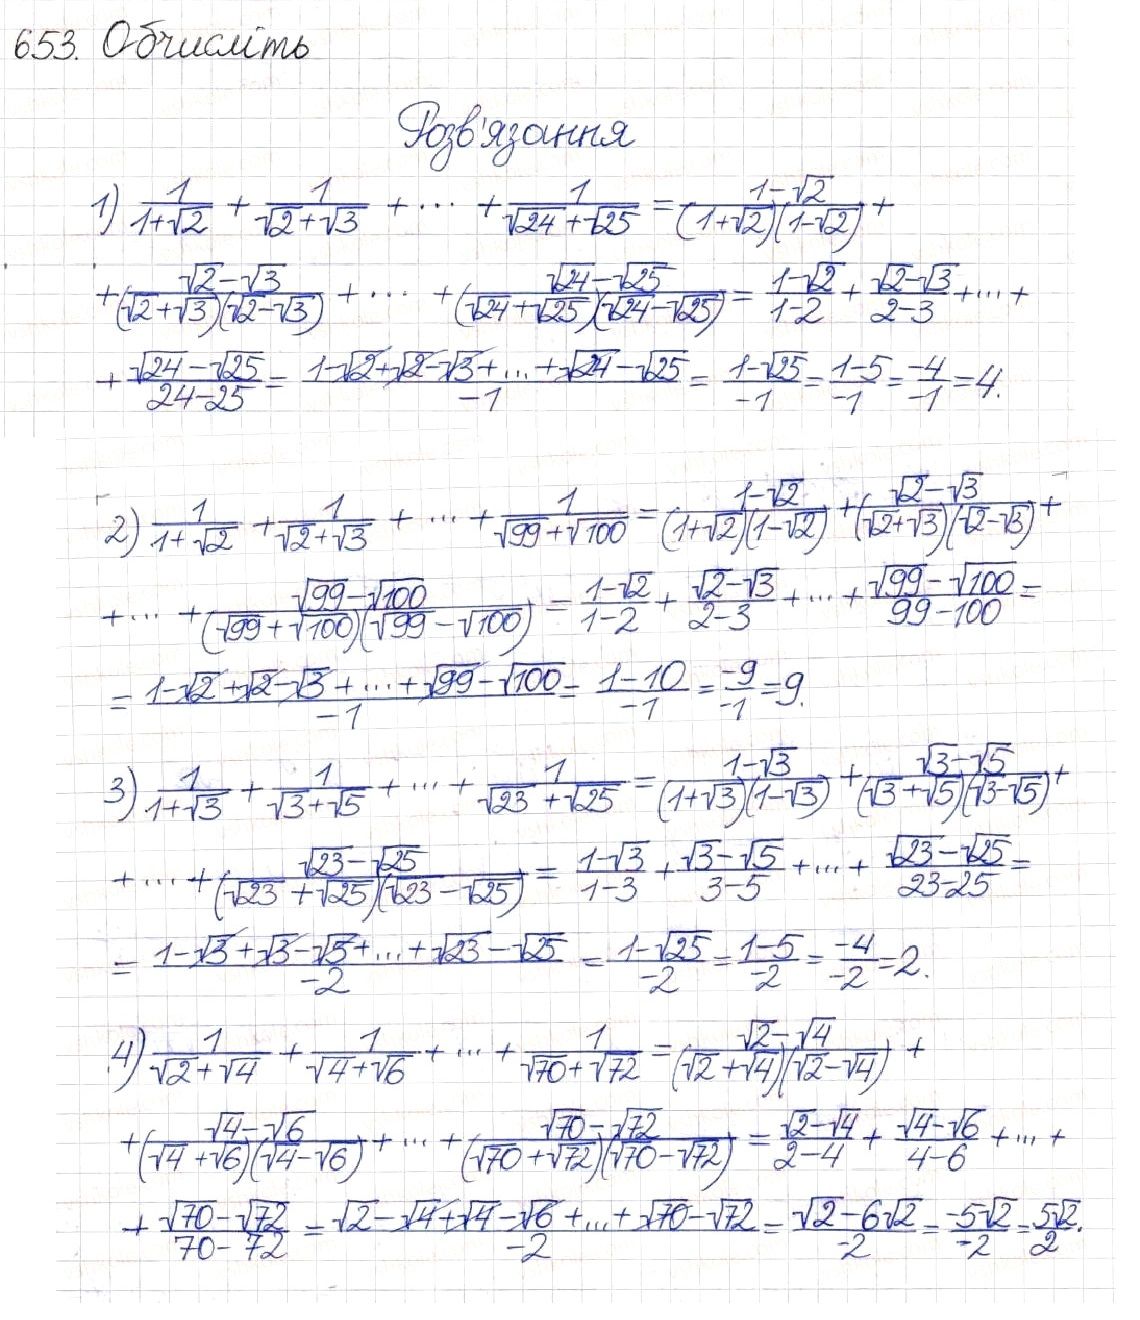 653. Обчисліть
Розв'язання
1) 1/(1+√2) + 1/(√2+√3) + ... + 1/(√24+√25) = (1-√2)/((1+√2)(1-√2)) +
+ (√2-√3)/((√2+√3)(√2-√3)) + ... + (√24-√25)/((√24+√25)(√24-√25)) = (1-√2)/(1-2) + (√2-√3)/(2-3) + ... +
+ (√24-√25)/(24-25) = (1-√2+√2-√3+...+√24-√25)/(-1) = (1-√25)/(-1) = (1-5)/(-1) = (-4)/(-1) = 4.
2) 1/(1+√2) + 1/(√2+√3) + ... + 1/(√99+√100) = (1-√2)/((1+√2)(1-√2)) + (√2-√3)/((√2+√3)(√2-√3)) +
+ ... + (√99-√100)/((√99+√100)(√99-√100)) = (1-√2)/(1-2) + (√2-√3)/(2-3) + ... + (√99-√100)/(99-100) =
= (1-√2+√2-√3+...+√99-√100)/(-1) = (1-10)/(-1) = (-9)/(-1) = 9.
3) 1/(1+√3) + 1/(√3+√5) + ... + 1/(√23+√25) = (1-√3)/((1+√3)(1-√3)) + (√3-√5)/((√3+√5)(√3-√5)) +
+ ... + (√23-√25)/((√23+√25)(√23-√25)) = (1-√3)/(1-3) + (√3-√5)/(3-5) + ... + (√23-√25)/(23-25) =
= (1-√3+√3-√5+...+√23-√25)/(-2) = (1-√25)/(-2) = (1-5)/(-2) = (-4)/(-2) = 2.
4) 1/(√2+√4) + 1/(√4+√6) + ... + 1/(√70+√72) = (√2-√4)/((√2+√4)(√2-√4)) +
+ (√4-√6)/((√4+√6)(√4-√6)) + ... + (√70-√72)/((√70+√72)(√70-√72)) = (√2-√4)/(2-4) + (√4-√6)/(4-6) + ... +
+ (√70-√72)/(70-72) = (√2-√4+√4-√6+...+√70-√72)/(-2) = (√2-6√2)/(-2) = (-5√2)/(-2) = 5√2/2.